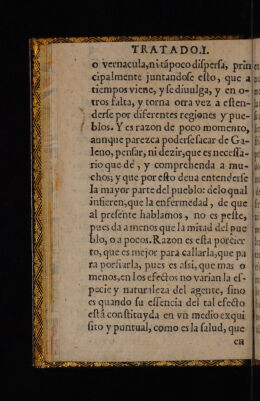 TRATADO.I.
o vernacula,ni tápoco dispersa, prin
cipalmente juntandose esto, que a
tiempos viene, y se diuulga, y en o-
tros falta, y torna otra vez a esten-
derse por diferentes regiones y pue-
blos. Y es razon de poco momento,
aunque parezca poderse sacar de Ga-
leno, pensar, ni dezir, que es necessa-
rio que dé, y comprehenda a mu-
chos; y que por esto deua entenderse
la mayor parte del pueblo: de lo qual
infieren, que la enfermedad, de que
al presente hablamos, no es peste,
pues da a menos que la mitad del pue
blo, o a pocos. Razon es esta por cier
to, que es mejor para callarla, que pa
ra porfiarla, pues es assi, que mas o
menos, en los efectos no varian la es-
pecie y naturaleza del agente, sino
es quando su essencia del tal efecto
está constituyda en vn medio exqui
sito y puntual, como es la salud, que